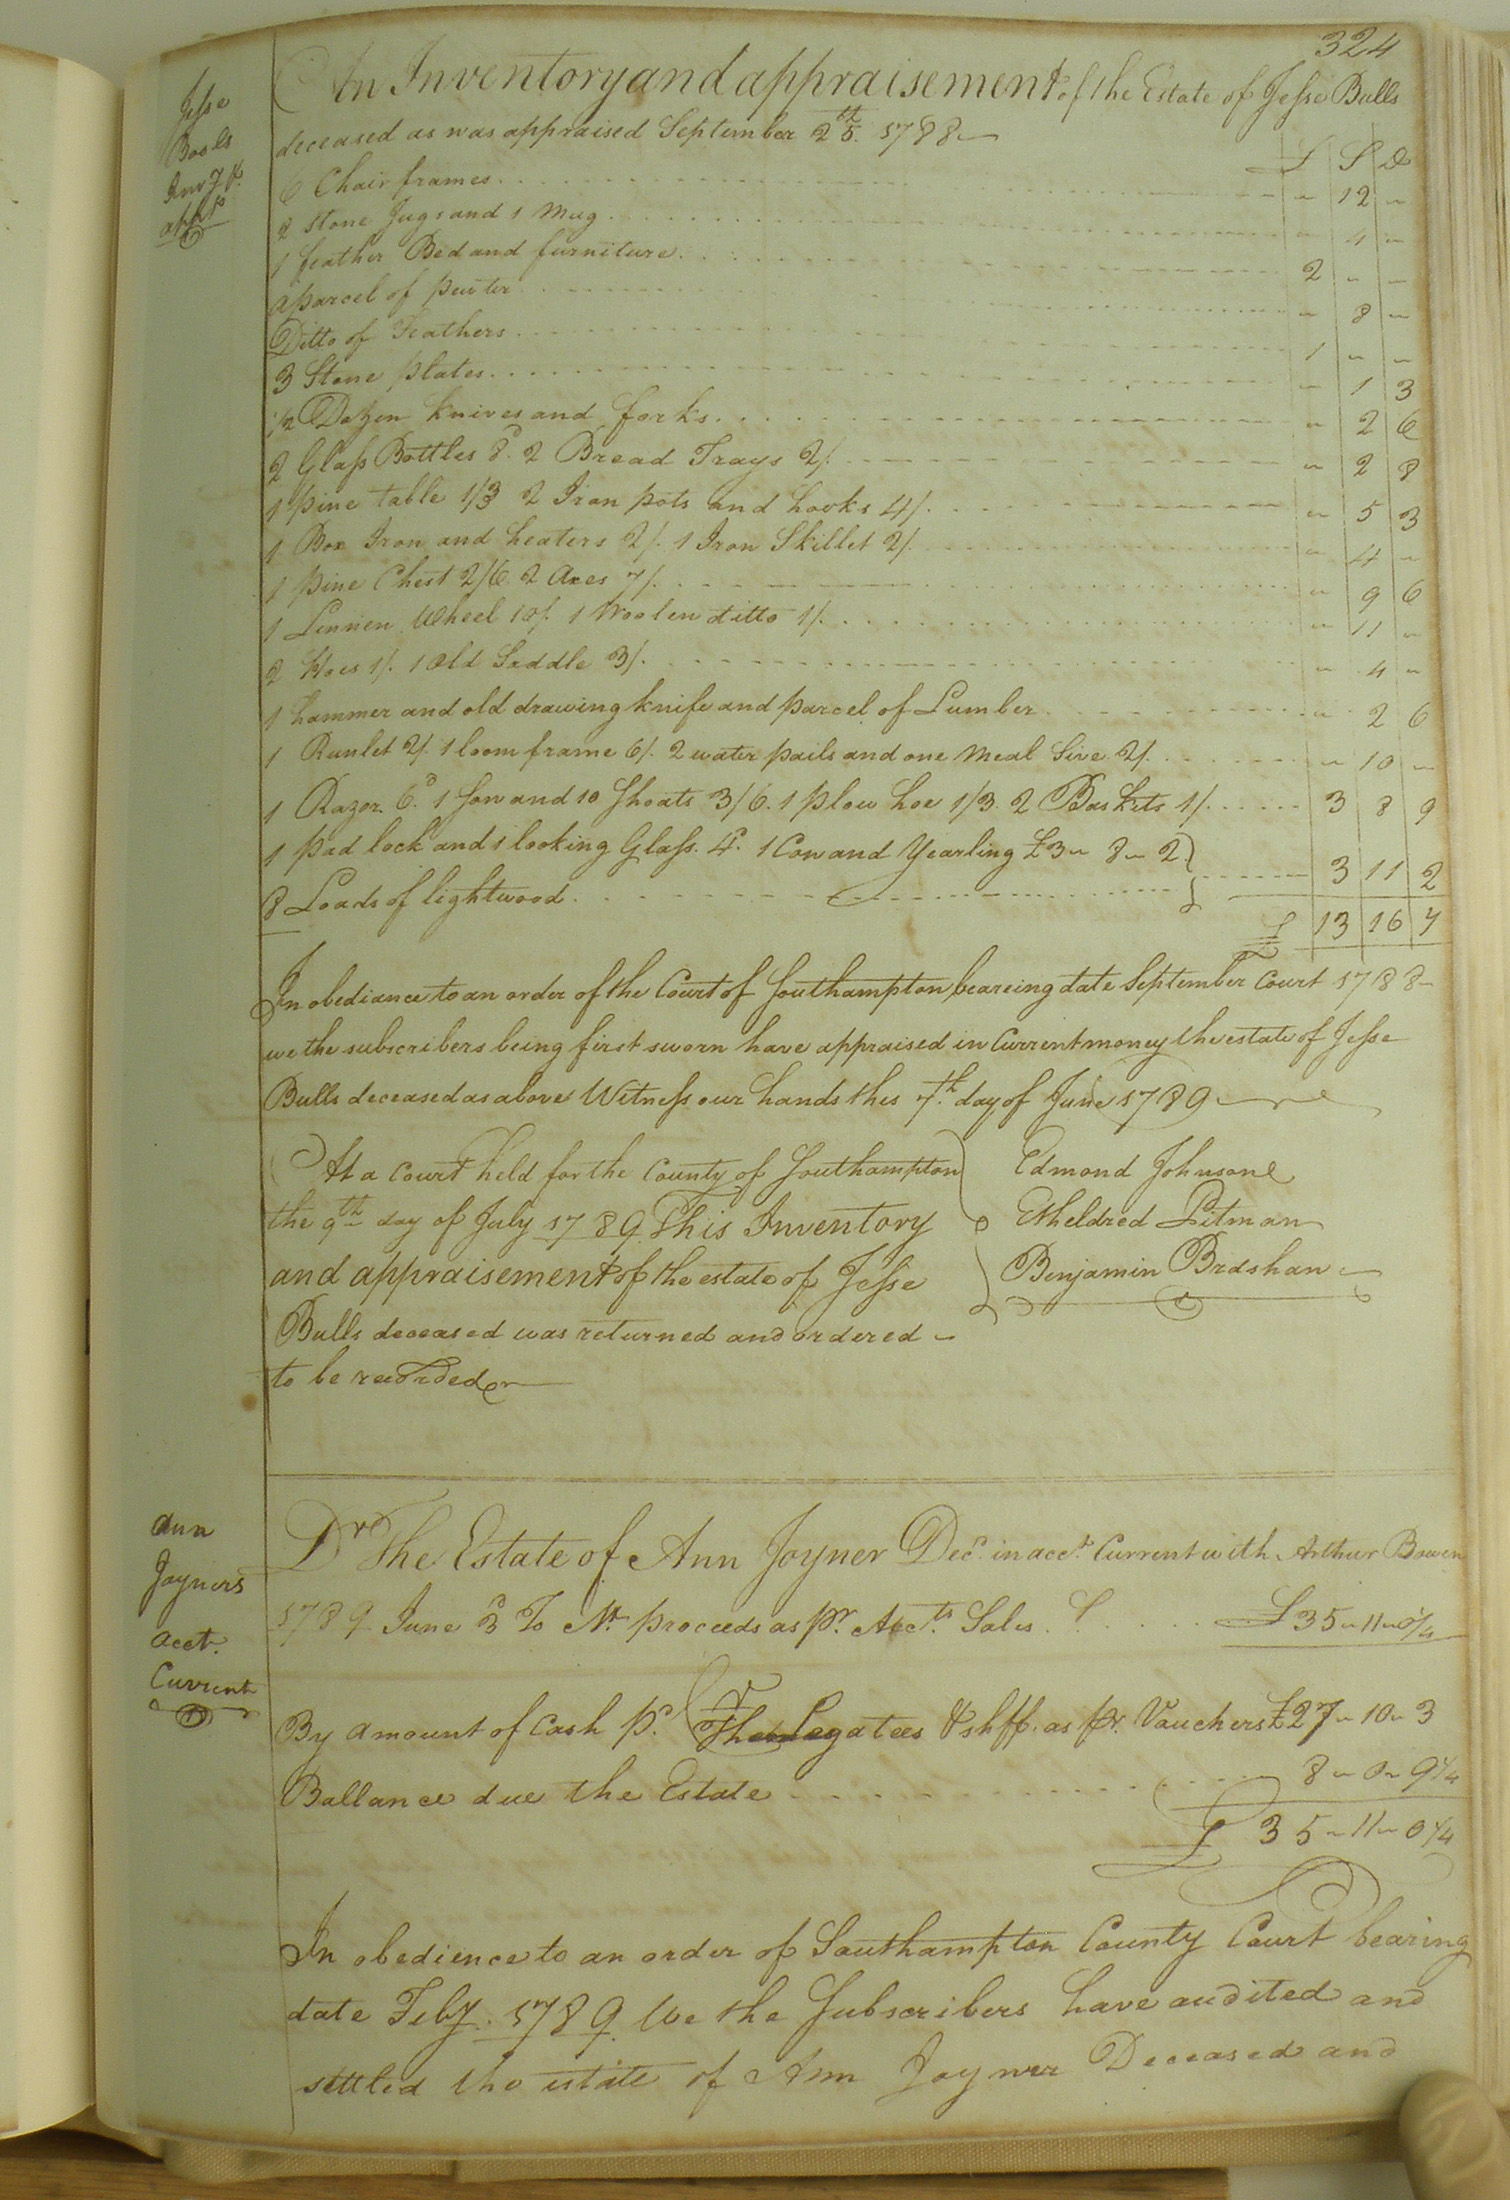 324
Jesse
Bools
Inv.y &
appr
An Inventory and appraisement of the Estate of Jesse Bulls
deceased as was appraised September 25th. 1788
£ S D
6 Chair frames " 12 "
2 Stone Jugs and 1 Mug " 4 "
1 feather Bed and furniture 2 " "
a parcel of pewter " 8 "
Ditto of Feathers 1 " "
3 Stone plates " 1 3
1/2 Dozen knives and forks " 2 6
2 Glass Bottles 8d. 2 Bread Trays 2/. " 2 8
1 pine table 1/3 2 Iron pots and hooks 4/. " 5 3
1 Box Iron and heaters 2/. 1 Iron Skillet 2/. " 4 "
1 pine Chest 2/6. 2 Axes 7/. " 9 6
1 Linnen Wheel 10/. 1 Woolen ditto 1/. " 11 "
2 Hoes 1/. 1 Old Saddle 3/. " 4 "
1 hammer and old drawing knife and parcel of Lumber " 2 6
1 Runlet 2/. 1 loom frame 6/. 2 water pails and one Meal Sive 2/. " 10 "
1 Razor 6d. 1 Sow and 10 Shoats 3/6. 1 plow hoe 1/3. 2 Baskets 1/. 3 8 9
1 pad lock and 1 looking Glass. 4d. 1 Cow and Yearling £3 " 8 " 2
8 Loads of lightwood. 3 11 2
£ 13 16 7
In obediance to an order of the Court of Southampton beareing date September Court 1788
we the subscribers being first sworn have appraised in Current money the estate of Jesse
Bulls deceased as above Witness our hands this 7th. day of June 1789
At a Court held for the County of Southampton
the 9th day of July 1789 This Inventory
and appraisement of the estate of Jesse
Bulls deceased was returned and ordered
to be recorded
Edmond Johnson
Etheldred Pitman
Benjamin Bradshaw
Ann
Joyners
acct.
Current
Dr The Estate of Ann Joyner Decd. in acct. Current with Arthur Bowen
1789 June 3d To Nt. proceeds as pr. Acct. Sales £35 " 11 " 0 1/4
By amount of Cash pd. The Legatees & shff. as pr. Vouchers £27 " 10 " 3
Ballance due the Estate 8 " 0 " 9 1/4
£ 35 " 11 " 0 1/4
In obedience to an order of Southampton County Court bearing
date Feby. 1789 We the Subscribers have audited and
settled the estate of Ann Joyner Deceased and